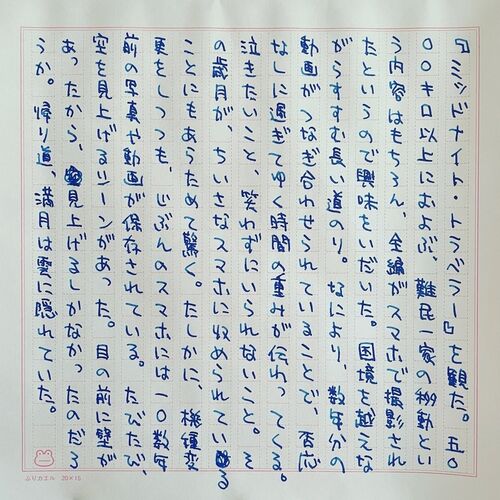 『ミッドナイト・トラベラー』を観た。五〇
〇〇キロ以上におよぶ、難民一家の移動とい
う内容はもちろん、全編がスマホで撮影され
たというので興味をいだいた。国境を越えな
がらすすむ長い道のり。なにより、数年分の
動画がつなぎ合わせられていることで、否応
なしに過ぎてゆく時間の重みが伝わってくる。
泣きたいこと、笑わずにいられないこと。そ
の歳月が、ちいさなスマホに収められている
ことにもあらためて驚く。たしかに、機種変
更をしつつも、じぶんのスマホには一〇数年
前の写真や動画が保存されている。たびたび、
空を見上げるシーンがあった。目の前に壁が
あったから、見上げるしかなかったのだろ
うか。帰り道、満月は雲に隠れていた。
ぷりカエル 20×15